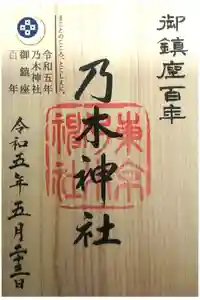 御鎮座百年
乃木神社
東京
まことのこころ、とこしえに。
令和五年
乃木神社
御鎮座
百年
令和五年五月二十三日